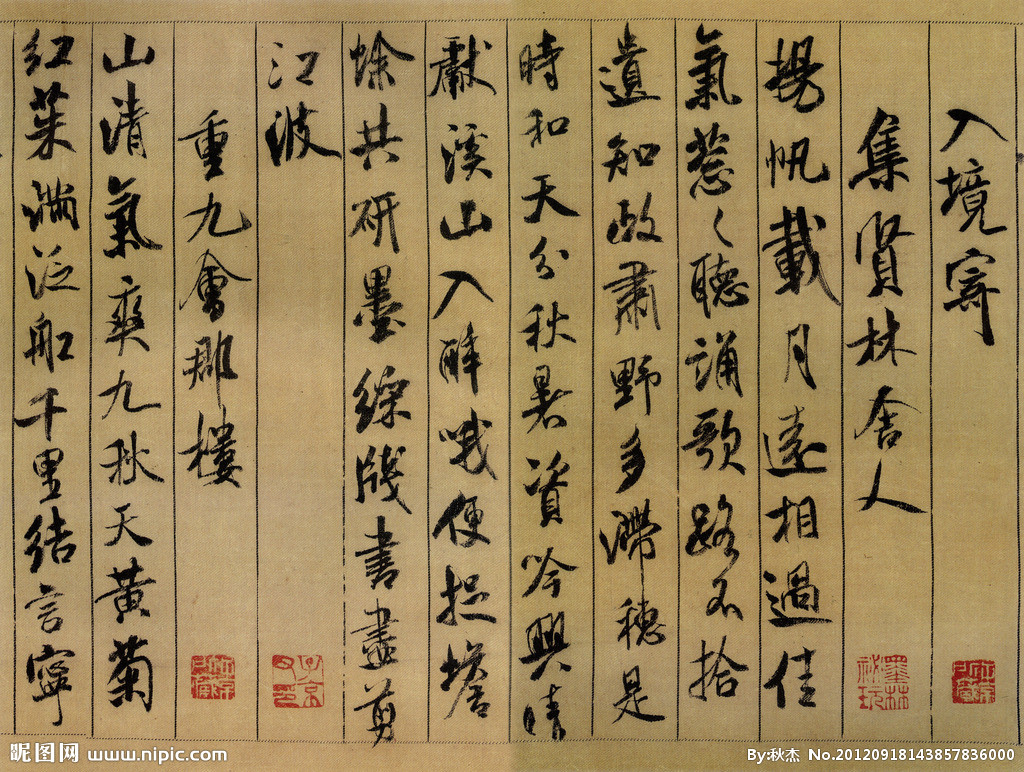 入境寄
集賢林舍人
揚帆載月遠相過佳
氣蔥々聽誦歌路不拾
遺知政肅野多滯穗是
時和天分秋暑資吟興晴
獻溪山入醉哦便捉蟾
蜍共研墨綵牋書盡剪
江波
重九會郡樓
山清氣爽九秋天黃菊
紅茱滿泛船千里結言寧
墨林祕玩
子京父印
昵图网 www.nipic.com
By:秋杰 No.20120918143857836000